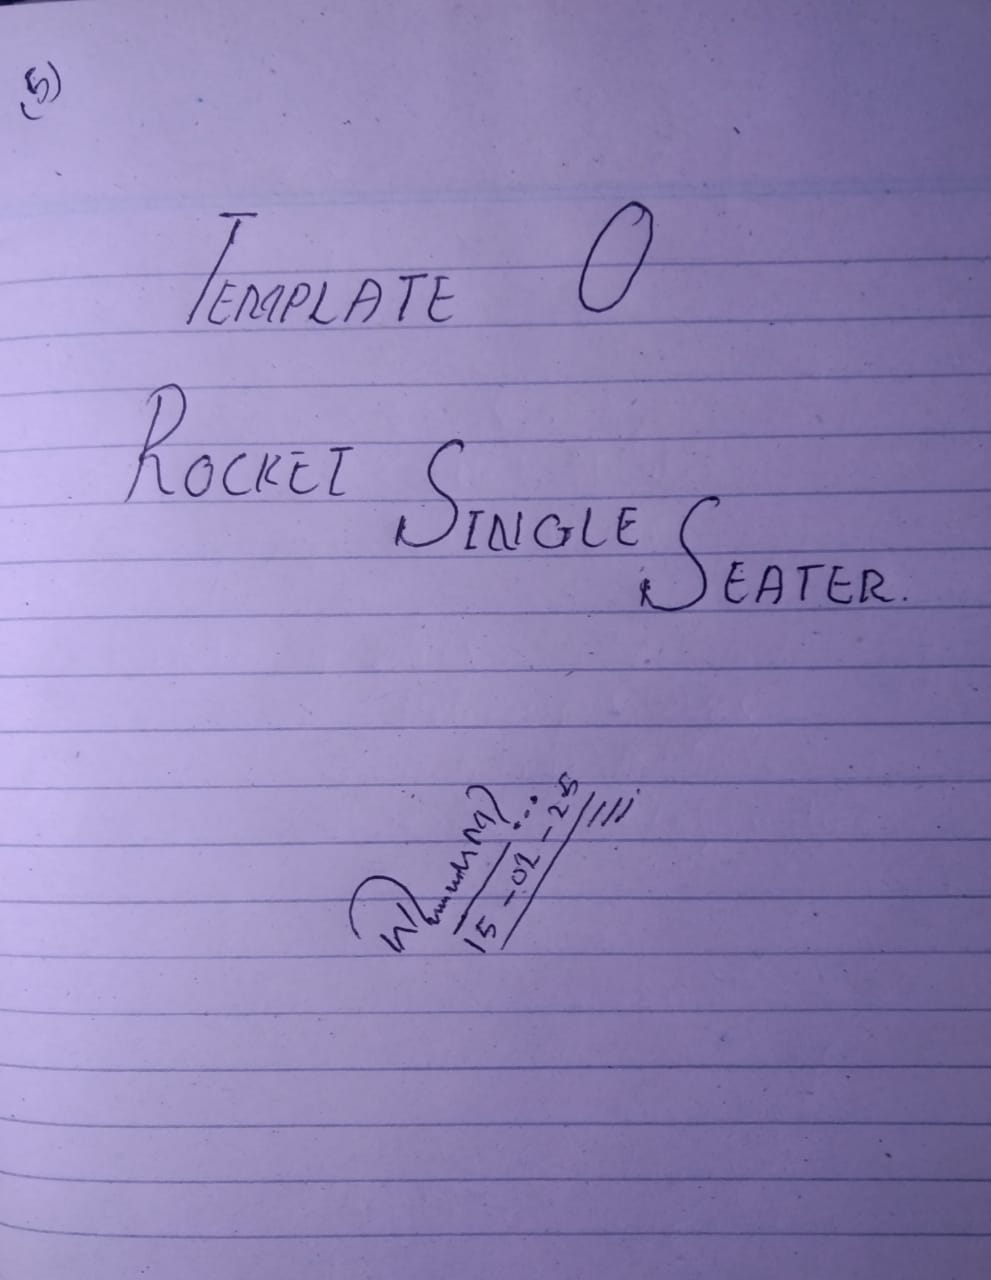 (5)
TEMPLATE O
ROCKET
SINGLE
SEATER.
15-02-25